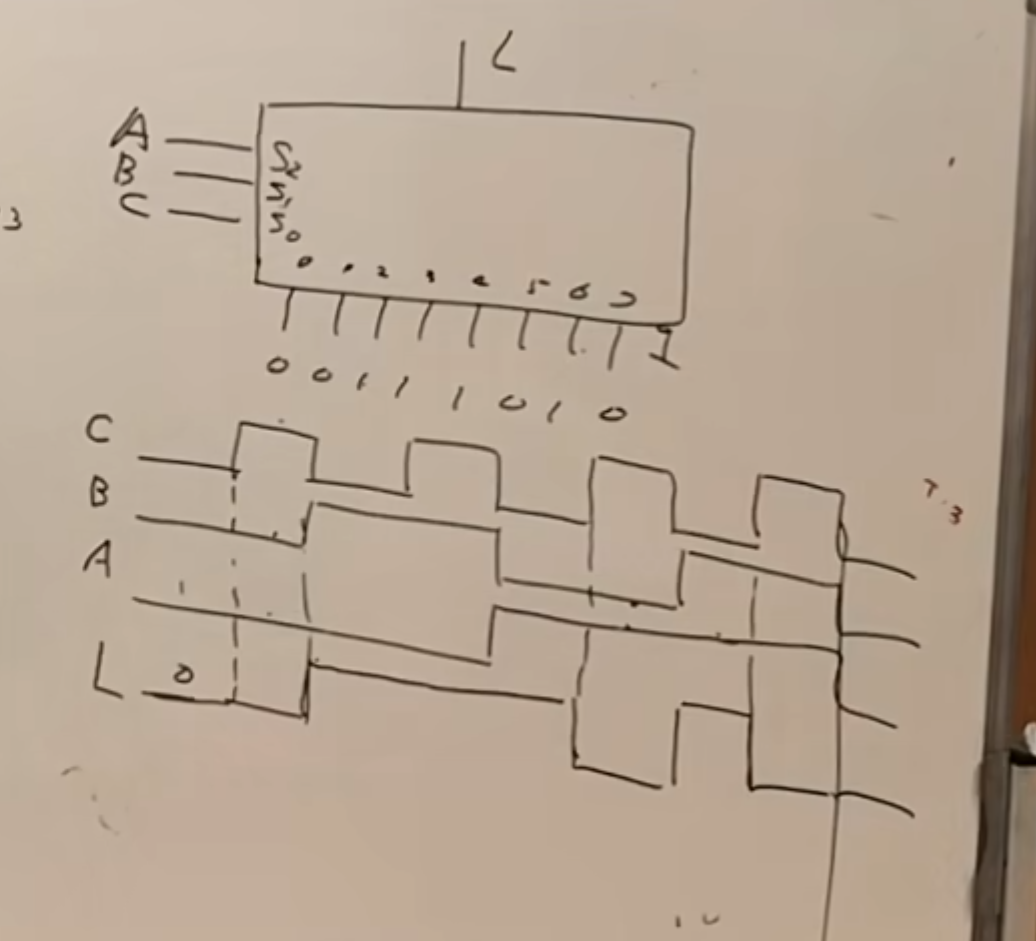 L
A
B
C
S2
S1
S0
3
0 1 2 3 4 5 6 7
0 0 1 1 1 0 1 0
C
B
A
L 0
7.3